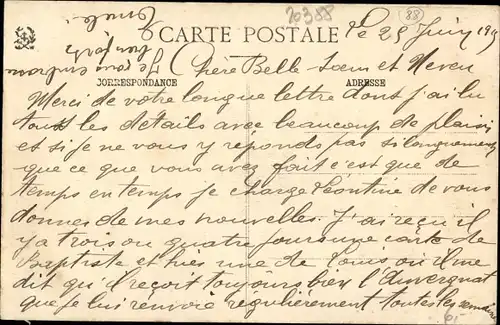 20388
88
CARTE POSTALE
le 28 Juin 19
Chère Belle Sœur et Neveu
CORRESPONDANCE
ADRESSE
Merci de votre longue lettre dont j'ai lu
tous les details avec beaucoup de plaisir
et si je ne vous y réponds pas si longuement
que ce que vous avez fait c'est que de
temps en temps je charge Léontine de vous
donner de mes nouvelles. J'ai reçu il
y a trois ou quatre jours une carte de
Baptiste et hier une de Louis où il me
dit qu'il reçoit toujours bien l'Auvergnat
que je lui renvoie régulièrement toutes les semaines
6-
Je vous embrasse
bien fort